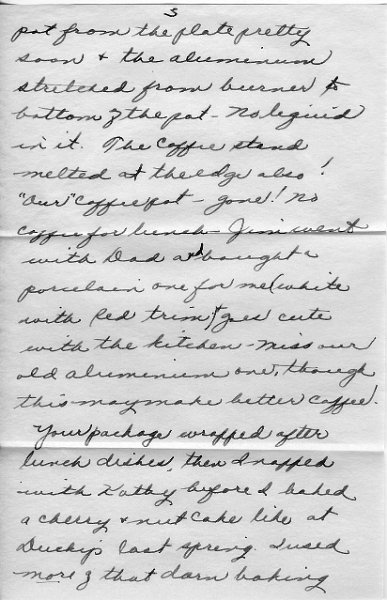 3
pot from the plate pretty
soon & the aluminium
stretched from burner to
bottom of the pot - No liquid
in it. The Coffee stand
melted at the edge also!
"Our" Coffee pot - gone! No
coffee for lunch - Jim went
with Dad and bought a
porcelain one for me (white
with Red trim) & goes cute
with the kitchen - miss our
old aluminium one, though
this may make better coffee!
Your package wrapped after
lunch dishes, then I napped
with Kathy before I baked
a cherry & nut cake like at
Ducky's last spring. I used
more of that darn baking